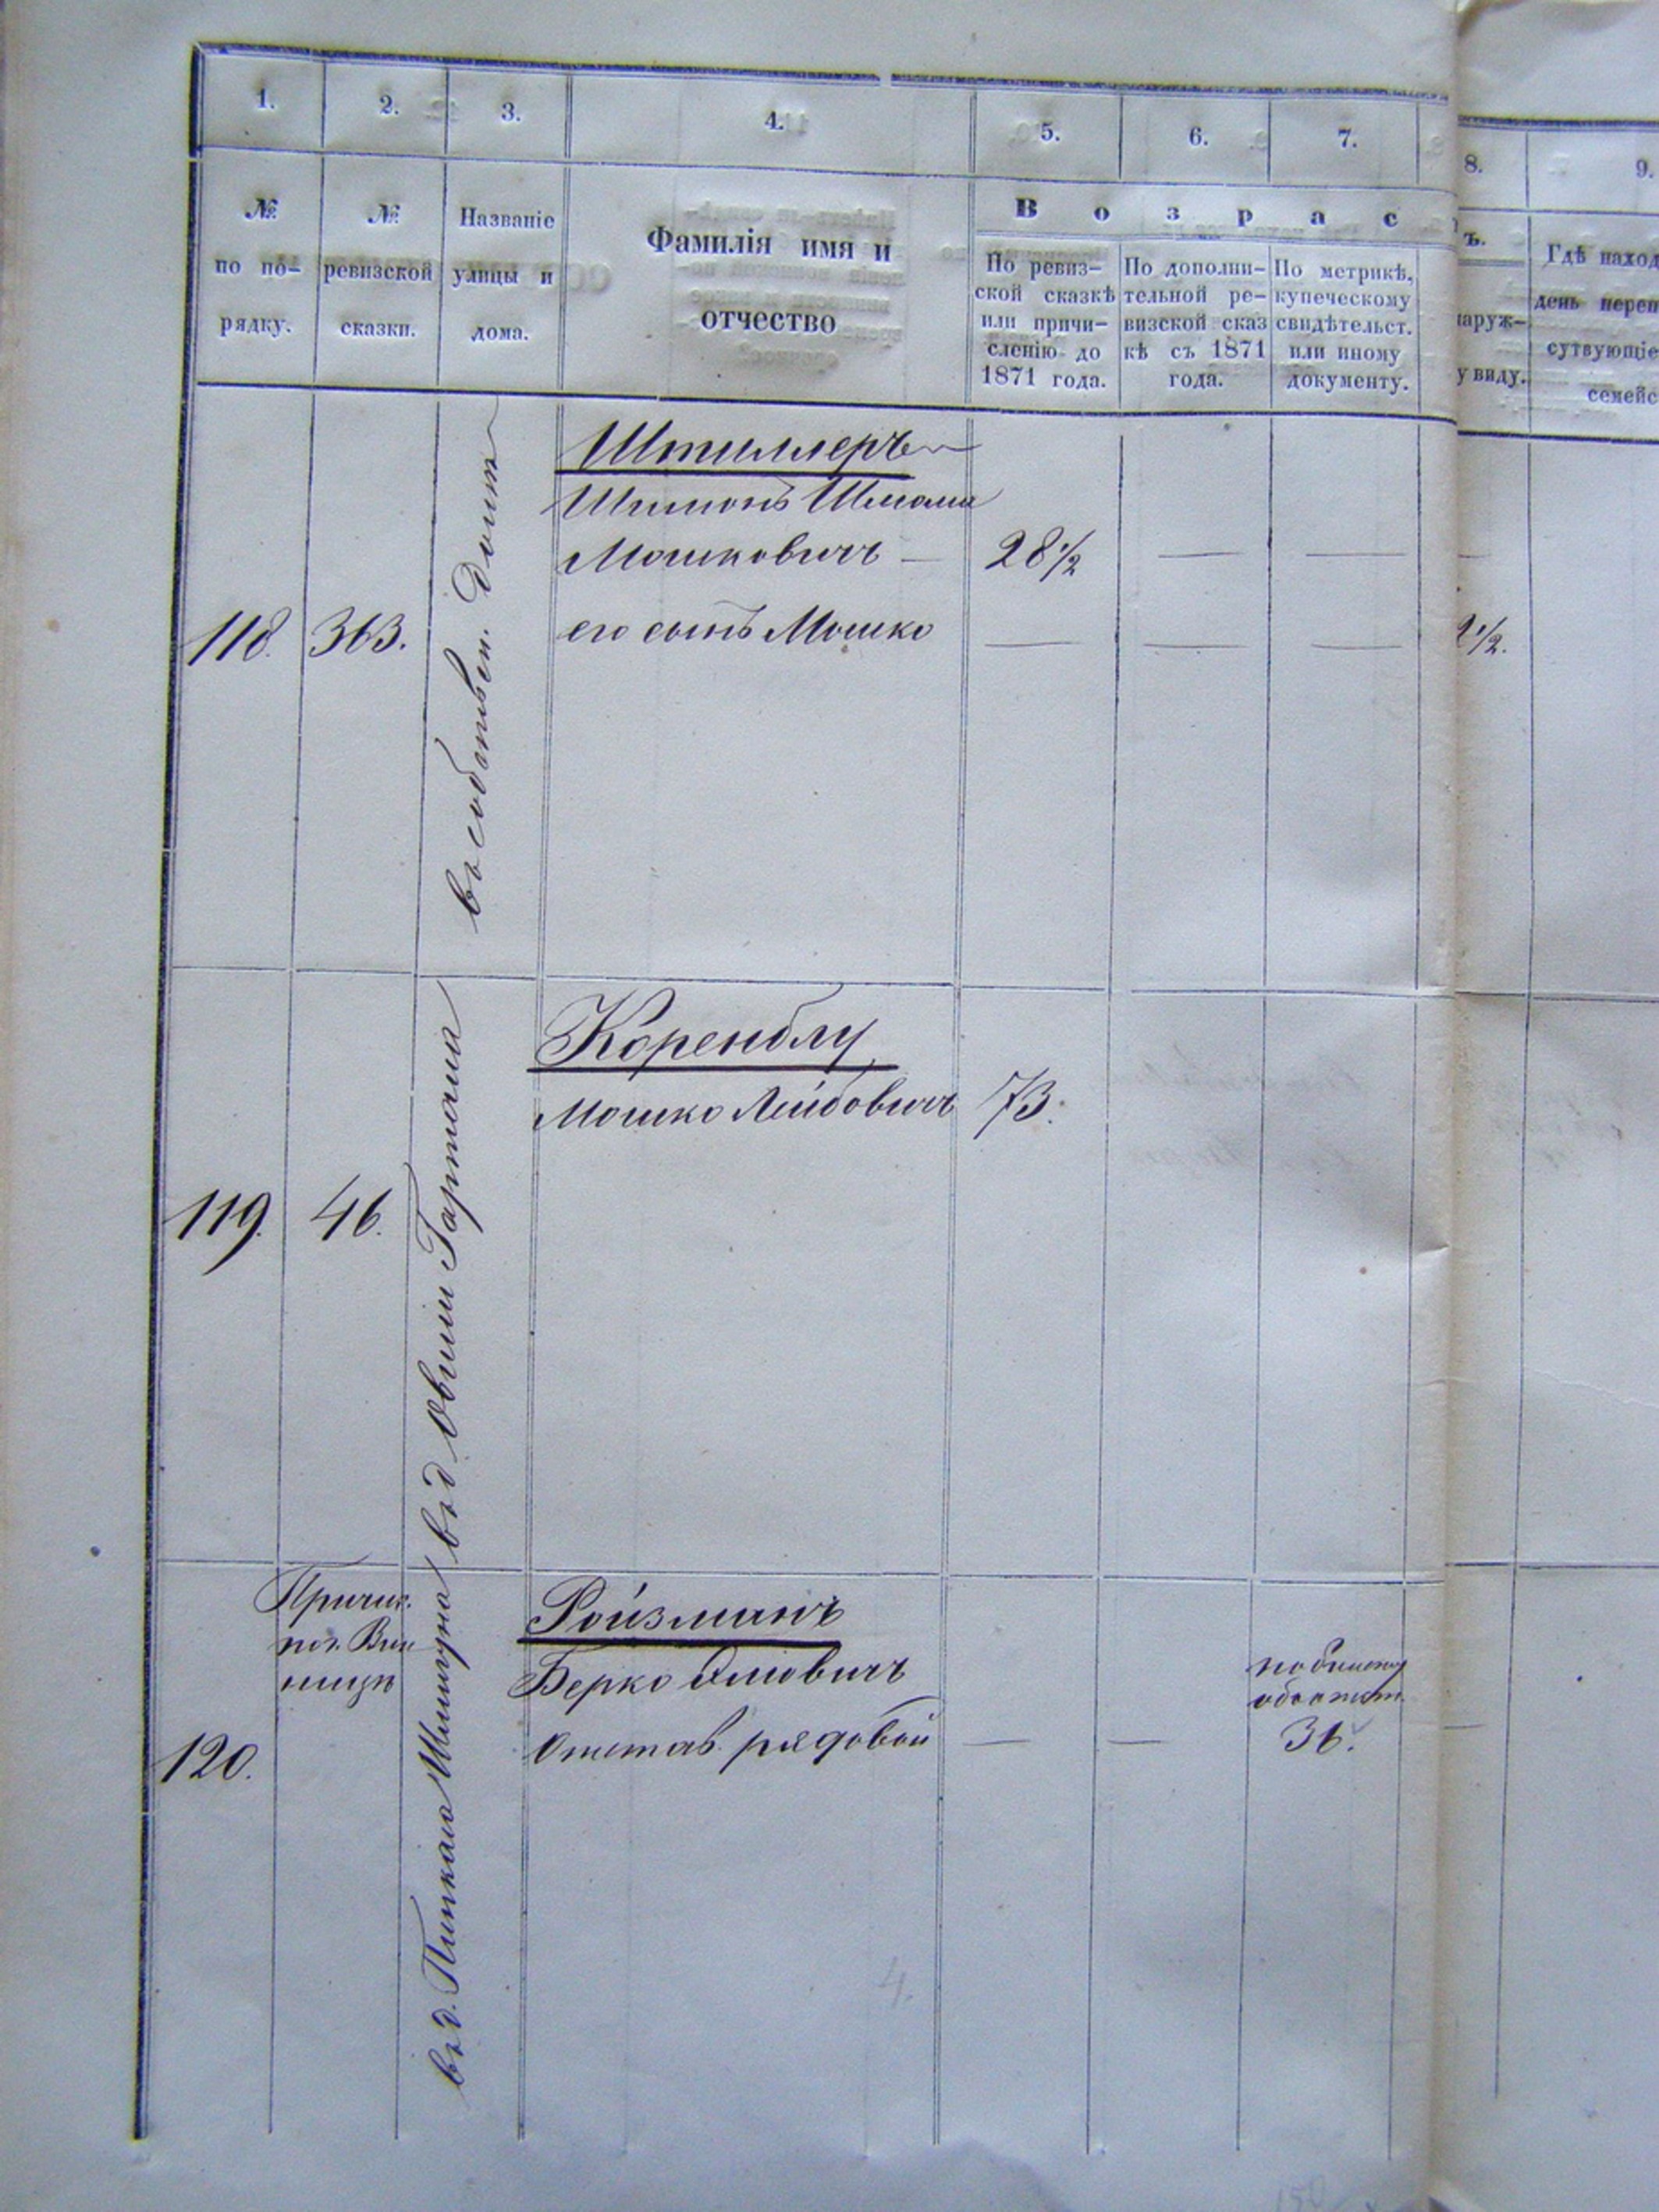 1. 2. 3. 4. 5. 6. 7. 8. 9.
№ по по-рядку.
№ ревизской сказки.
Названіе улицы и дома.
Фамилія имя и
отчество
В о з р а с
По ревиз-
ской сказкѣ
или причи-
сленію до
1871 года.
По дополни-
тельной ре-
визской сказ
кѣ съ 1871
года.
По метрикѣ,
купеческому
свидѣтельст.
или иному
документу.
ъ.
наруж-
у виду.
Гдѣ наход
день переп
сутвующіе
семейс
118. 363.
въ собствен. домѣ
Штиллеръ
Шимонъ Шмая
Мошковичъ —
28½ — — —
его сынъ Мошко
— — — ½.
119. 46.
въ д. Овшии Гартмана
Коренблу
Мошко Лейбовичъ 73.
120.
Причис.
по г. Вин
ницѣ
въ д. Пинкаса
Ройзманъ
Берко
Отстав. рядовой — —
по билету
36.
4.
150